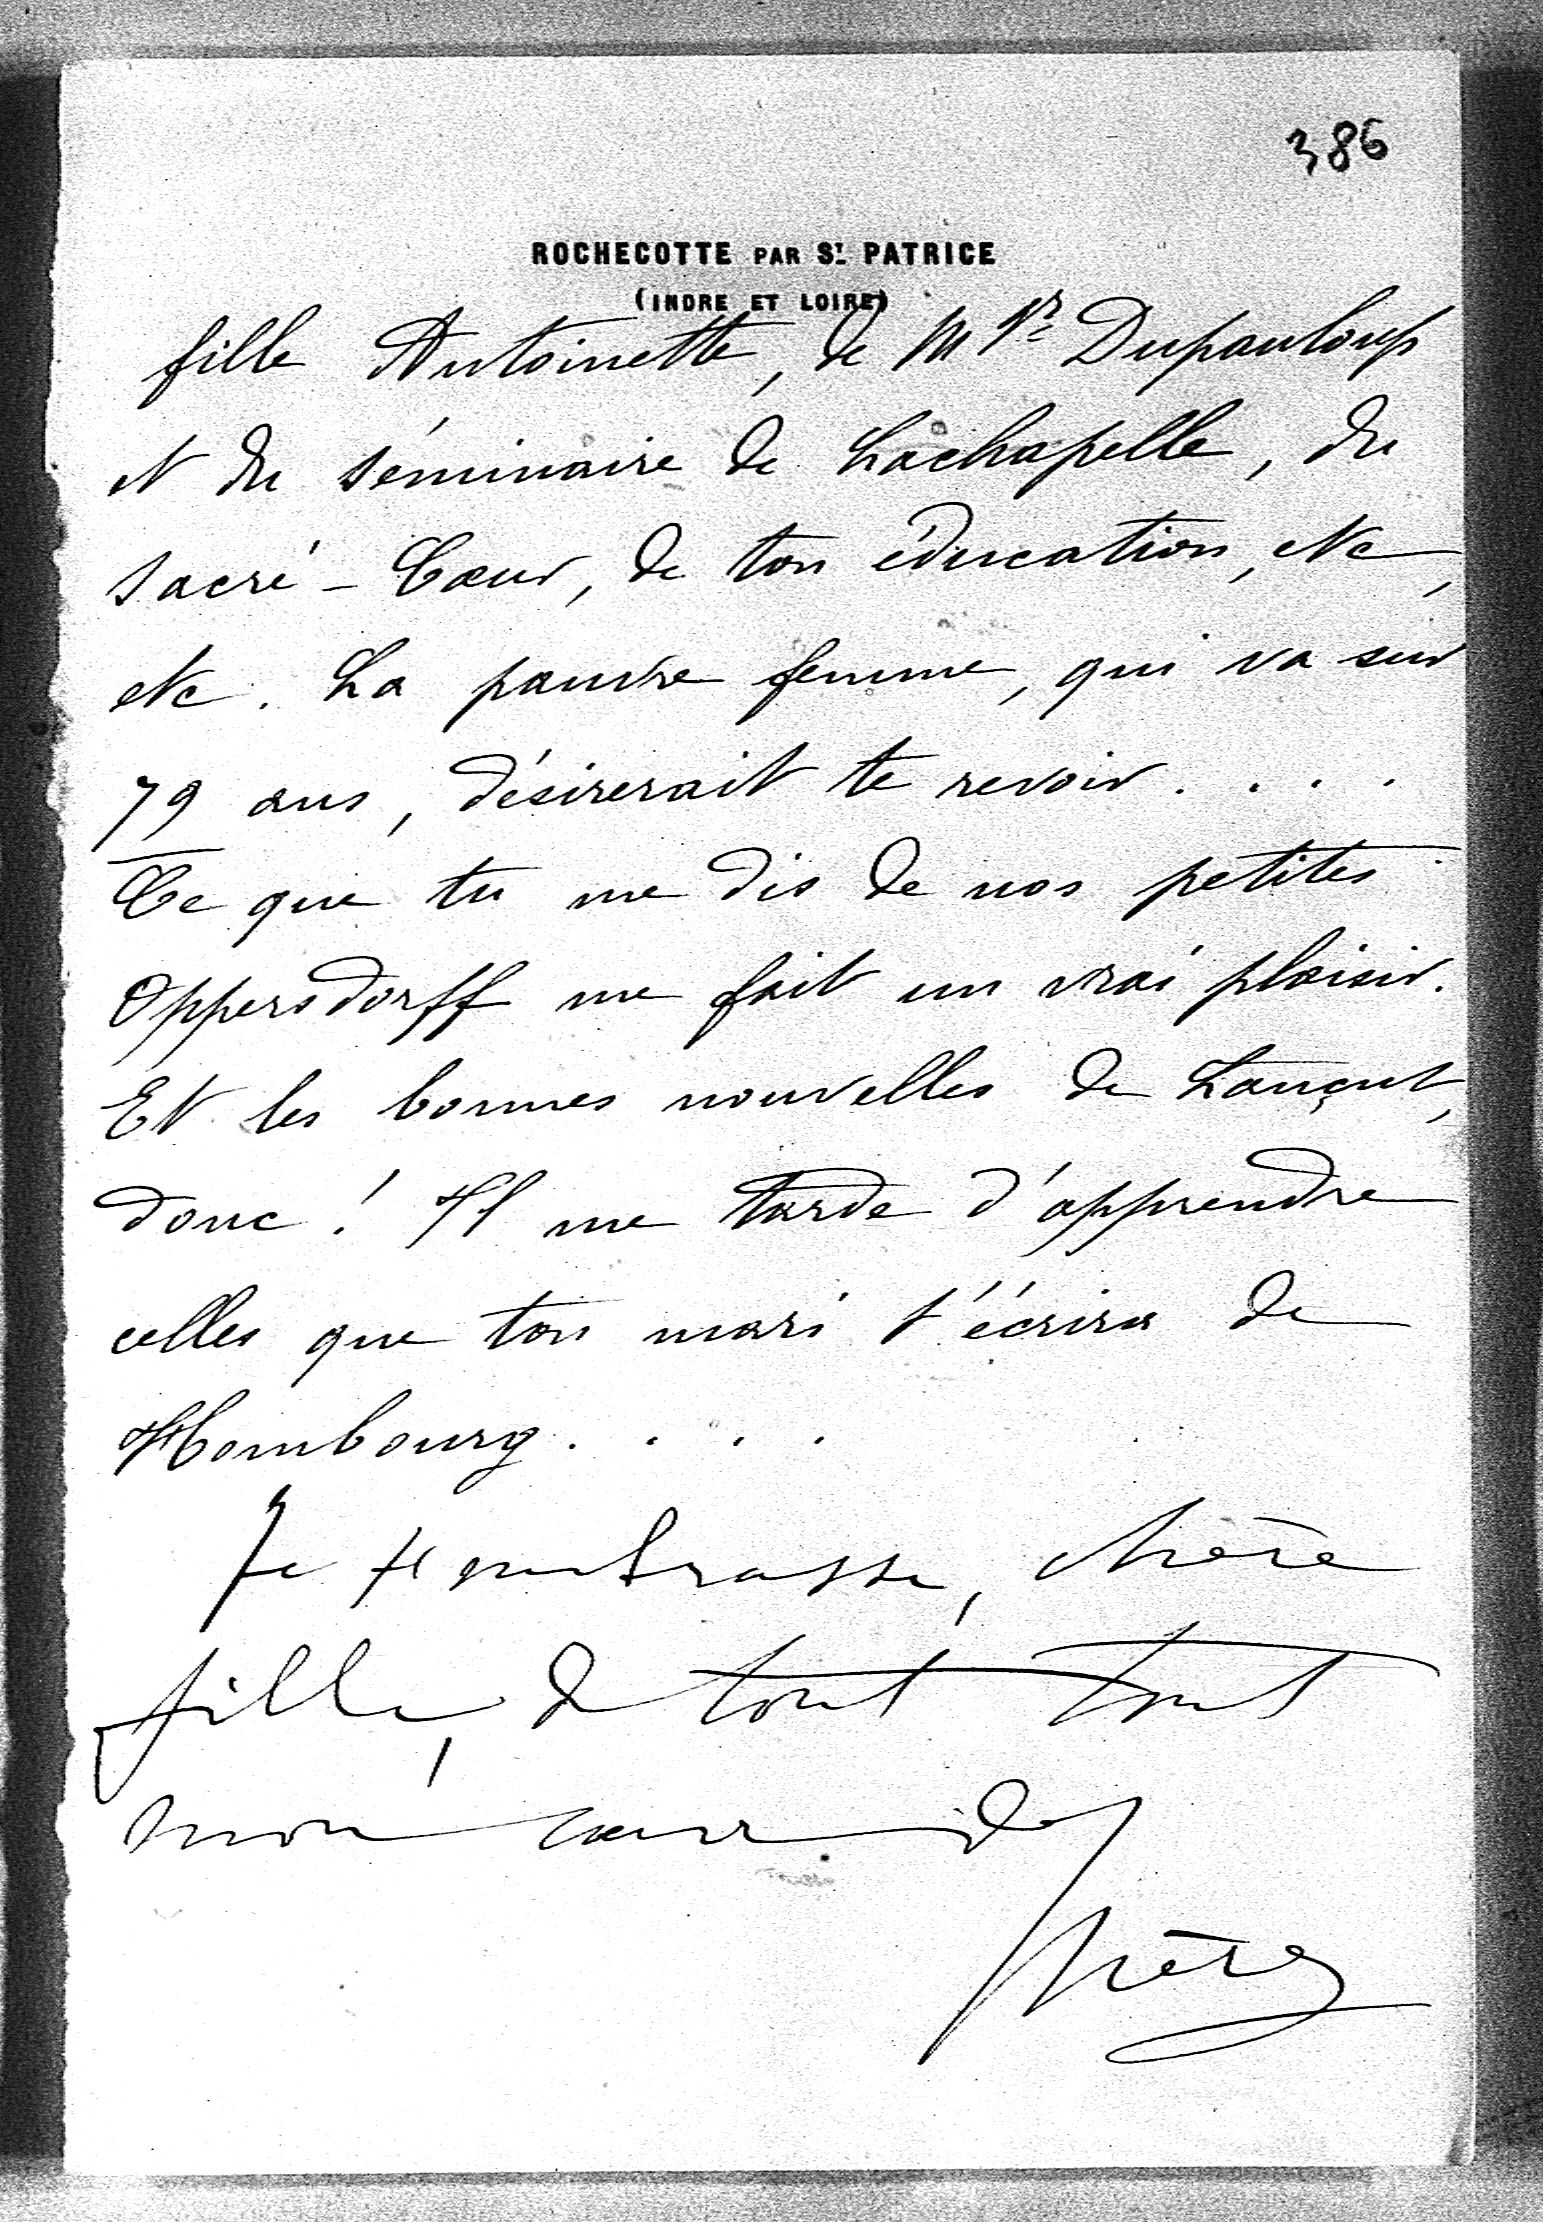 386
ROCHECOTTE PAR ST. PATRICE
(INDRE ET LOIRE)
fille Antoinette, de Mgr Dupanloup
et du séminaire de Lachapelle, du
Sacré-Cœur, de ton éducation, etc,
etc. La pauvre femme, qui va sur
79 ans, désirerait te revoir. . . .
Ce que tu me dis de nos petites
Oppersdorff me fait un vrai plaisir.
Et les bonnes nouvelles de Lançut,
donc ! Il me tarde d'apprendre
celles que ton mari t'écrira de
Hombourg. . . .
Je t'embrasse, chère
fille, de tout tout
mon cœur de
mère